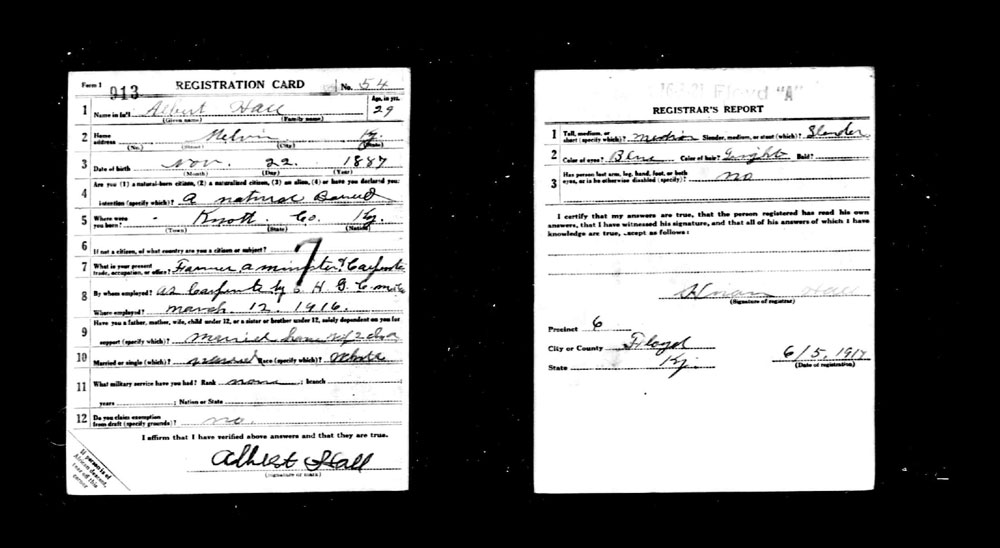 Form 1 913 REGISTRATION CARD No. 54
1 Name in full Albert Hall Age, in yrs. 29
(Given name) (Family name)
2 Home address Melvin Ky.
(No.) (Street) (City) (State)
3 Date of birth Nov. 22 1887
(Month) (Day) (Year)
4 Are you (1) a natural-born citizen, (2) a naturalized citizen, (3) an alien, (4) or have you declared your
intention (specify which)? A natural
5 Where were you born? Knott Co. Ky.
(Town) (State) (Nation)
6 If not a citizen, of what country are you a citizen or subject?
7
7 What is your present trade, occupation, or office? Farmer, a minister & Carpenter
8 By whom employed? as Carpenter by
Where employed? march 12. 1916.
9 Have you a father, mother, wife, child under 12, or a sister or brother under 12, solely dependent on you for
support (specify which)? married
10 Married or single (which)? married Race (specify which)?
11 What military service have you had? Rank none ; branch
years ; Nation or State
12 Do you claim exemption from draft (specify grounds)? no.
I affirm that I have verified above answers and that they are true.
Albert Hall
(Signature or mark)
If person is of
African descent,
tear off this
corner
Floyd "A"
REGISTRAR'S REPORT
1 Tall, medium, or short (specify which)? Medium Slender, medium, or stout (which)? Slender
2 Color of eyes? Blue Color of hair? Bald?
3 Has person lost arm, leg, hand, foot, or both eyes, or is he otherwise disabled (specify)? no
I certify that my answers are true, that the person registered has read his own
answers, that I have witnessed his signature, and that all of his answers of which I have
knowledge are true, except as follows:
Hall
(Signature of registrar)
Precinct 6
City or County Floyd
State Ky. 6/5, 1917
(Date of registration)